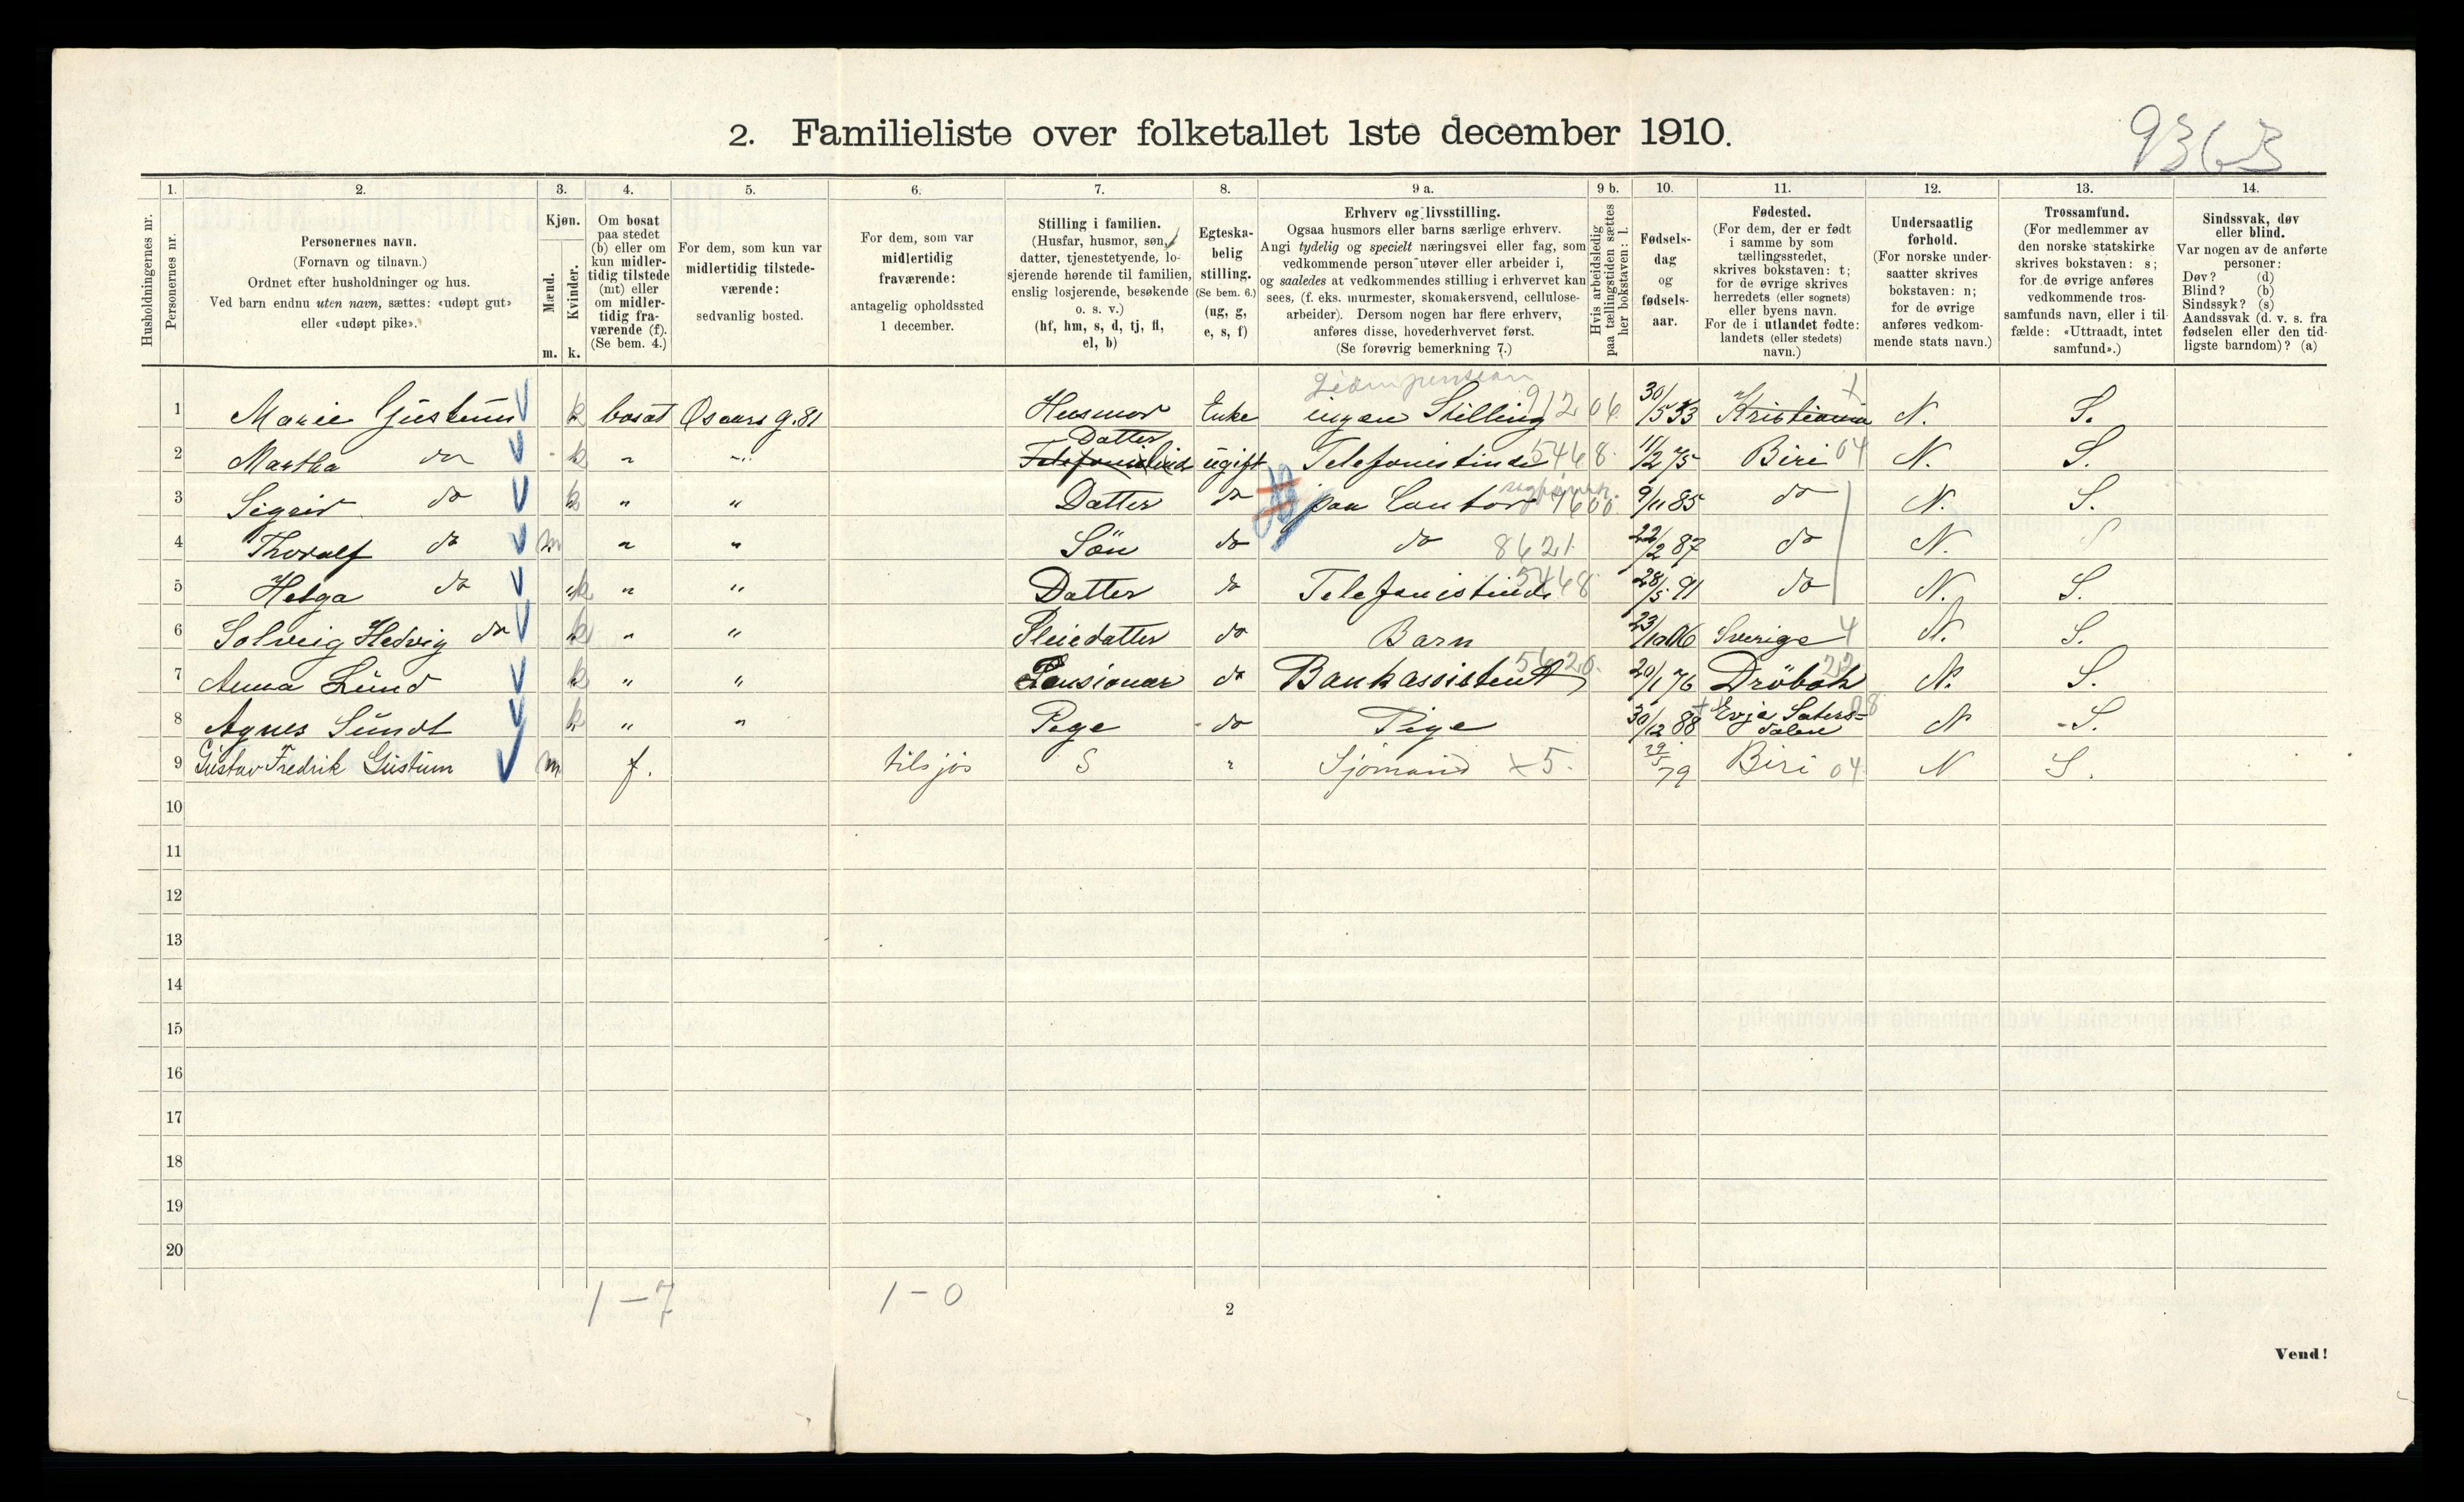 2. Familieliste over folketallet 1ste december 1910.
9363
1. 2. 3. 4. 5. 6. 7. 8. 9 a. 9 b. 10. 11. 12. 13. 14.
Husholdningernes nr.
Personernes nr.
Personernes navn.
(Fornavn og tilnavn.)
Ordnet efter husholdninger og hus.
Ved barn endnu uten navn, sættes: «udøpt gut»
eller «udøpt pike».
Kjøn.
Mænd.
Kvinder.
m. k.
Om bosat
paa stedet
(b) eller om
kun midler-
tidig tilstede
(mt) eller
om midler-
tidig fra-
værende (f).
(Se bem. 4.)
For dem, som kun var
midlertidig tilstede-
værende:
sedvanlig bosted.
For dem, som var
midlertidig
fraværende:
antagelig opholdssted
1 december.
Stilling i familien.
(Husfar, husmor, søn,
datter, tjenestetyende, lo-
sjerende hørende til familien,
enslig losjerende, besøkende
o. s. v.)
(hf, hm, s, d, tj, fl,
el, b)
Egteska-
belig
stilling.
(Se bem. 6.)
(ug, g,
e, s, f)
Erhverv og livsstilling.
Ogsaa husmors eller barns særlige erhverv.
Angi tydelig og specielt næringsvei eller fag, som
vedkommende person utøver eller arbeider i,
og saaledes at vedkommendes stilling i erhvervet kan
sees, (f. eks. murmester, skomakersvend, cellulose-
arbeider). Dersom nogen har flere erhverv,
anføres disse, hovederhvervet først.
(Se forøvrig bemerkning 7.)
Hvis arbeidsledig
paa tællingstiden sættes
her bokstaven: l.
Fødsels-
dag
og
fødsels-
aar.
Fødested.
(For dem, der er født
i samme by som
tællingsstedet,
skrives bokstaven: t;
for de øvrige skrives
herredets (eller sognets)
eller byens navn.
For de i utlandet fødte:
landets (eller stedets)
navn.)
Undersaatlig
forhold.
(For norske under-
saatter skrives
bokstaven: n;
for de øvrige
anføres vedkom-
mende stats navn.)
Trossamfund.
(For medlemmer av
den norske statskirke
skrives bokstaven: s;
for de øvrige anføres
vedkommende tros-
samfunds navn, eller i til-
fælde: «Uttraadt, intet
samfund».)
Sindssvak, døv
eller blind.
Var nogen av de anførte
personer:
Døv? (d)
Blind? (b)
Sindssyk? (s)
Aandssvak (d. v. s. fra
fødselen eller den tid-
ligste barndom)? (a)
1 Marie Gustum k bosat Oscars g. 81 Husmor Enke ingen Stilling 912 06 30/5 53 Kristiania N. S.
2 Martha do k " " Telefonistind Datter ugift Telefonistinde 5468 11/2 75 Biri 04 N. S.
3 Sigrid do k " " Datter do paa Contor 9/11 85 do N. S.
4 Thoralf do m " " Sön do do 8621 22/2 87 do N. S
5 Helga do k " " Datter do Telefonistinde 5468 28/5 91 do N. S.
6 Solveig Hedvig do k " " Pleiedatter do Barn 23/10 06 Sverige 4 N. S.
7 Anna Lund k " " Pensionær do Bankassistent 5620 20/1 76 Dröbak 22 N. S.
8 Agnes Sundt k " " Pige do Pige 30/12 88 Evje Saters=dalen N S.
9 Gustav Fredrik Gustum m f. tilsjøs S " Sjømand x 5. 29/5 79 Biri 04 N S.
10
11
12
13
14
15
16
17
18
19
20
1 - 7 1 - 0
2
Vend!